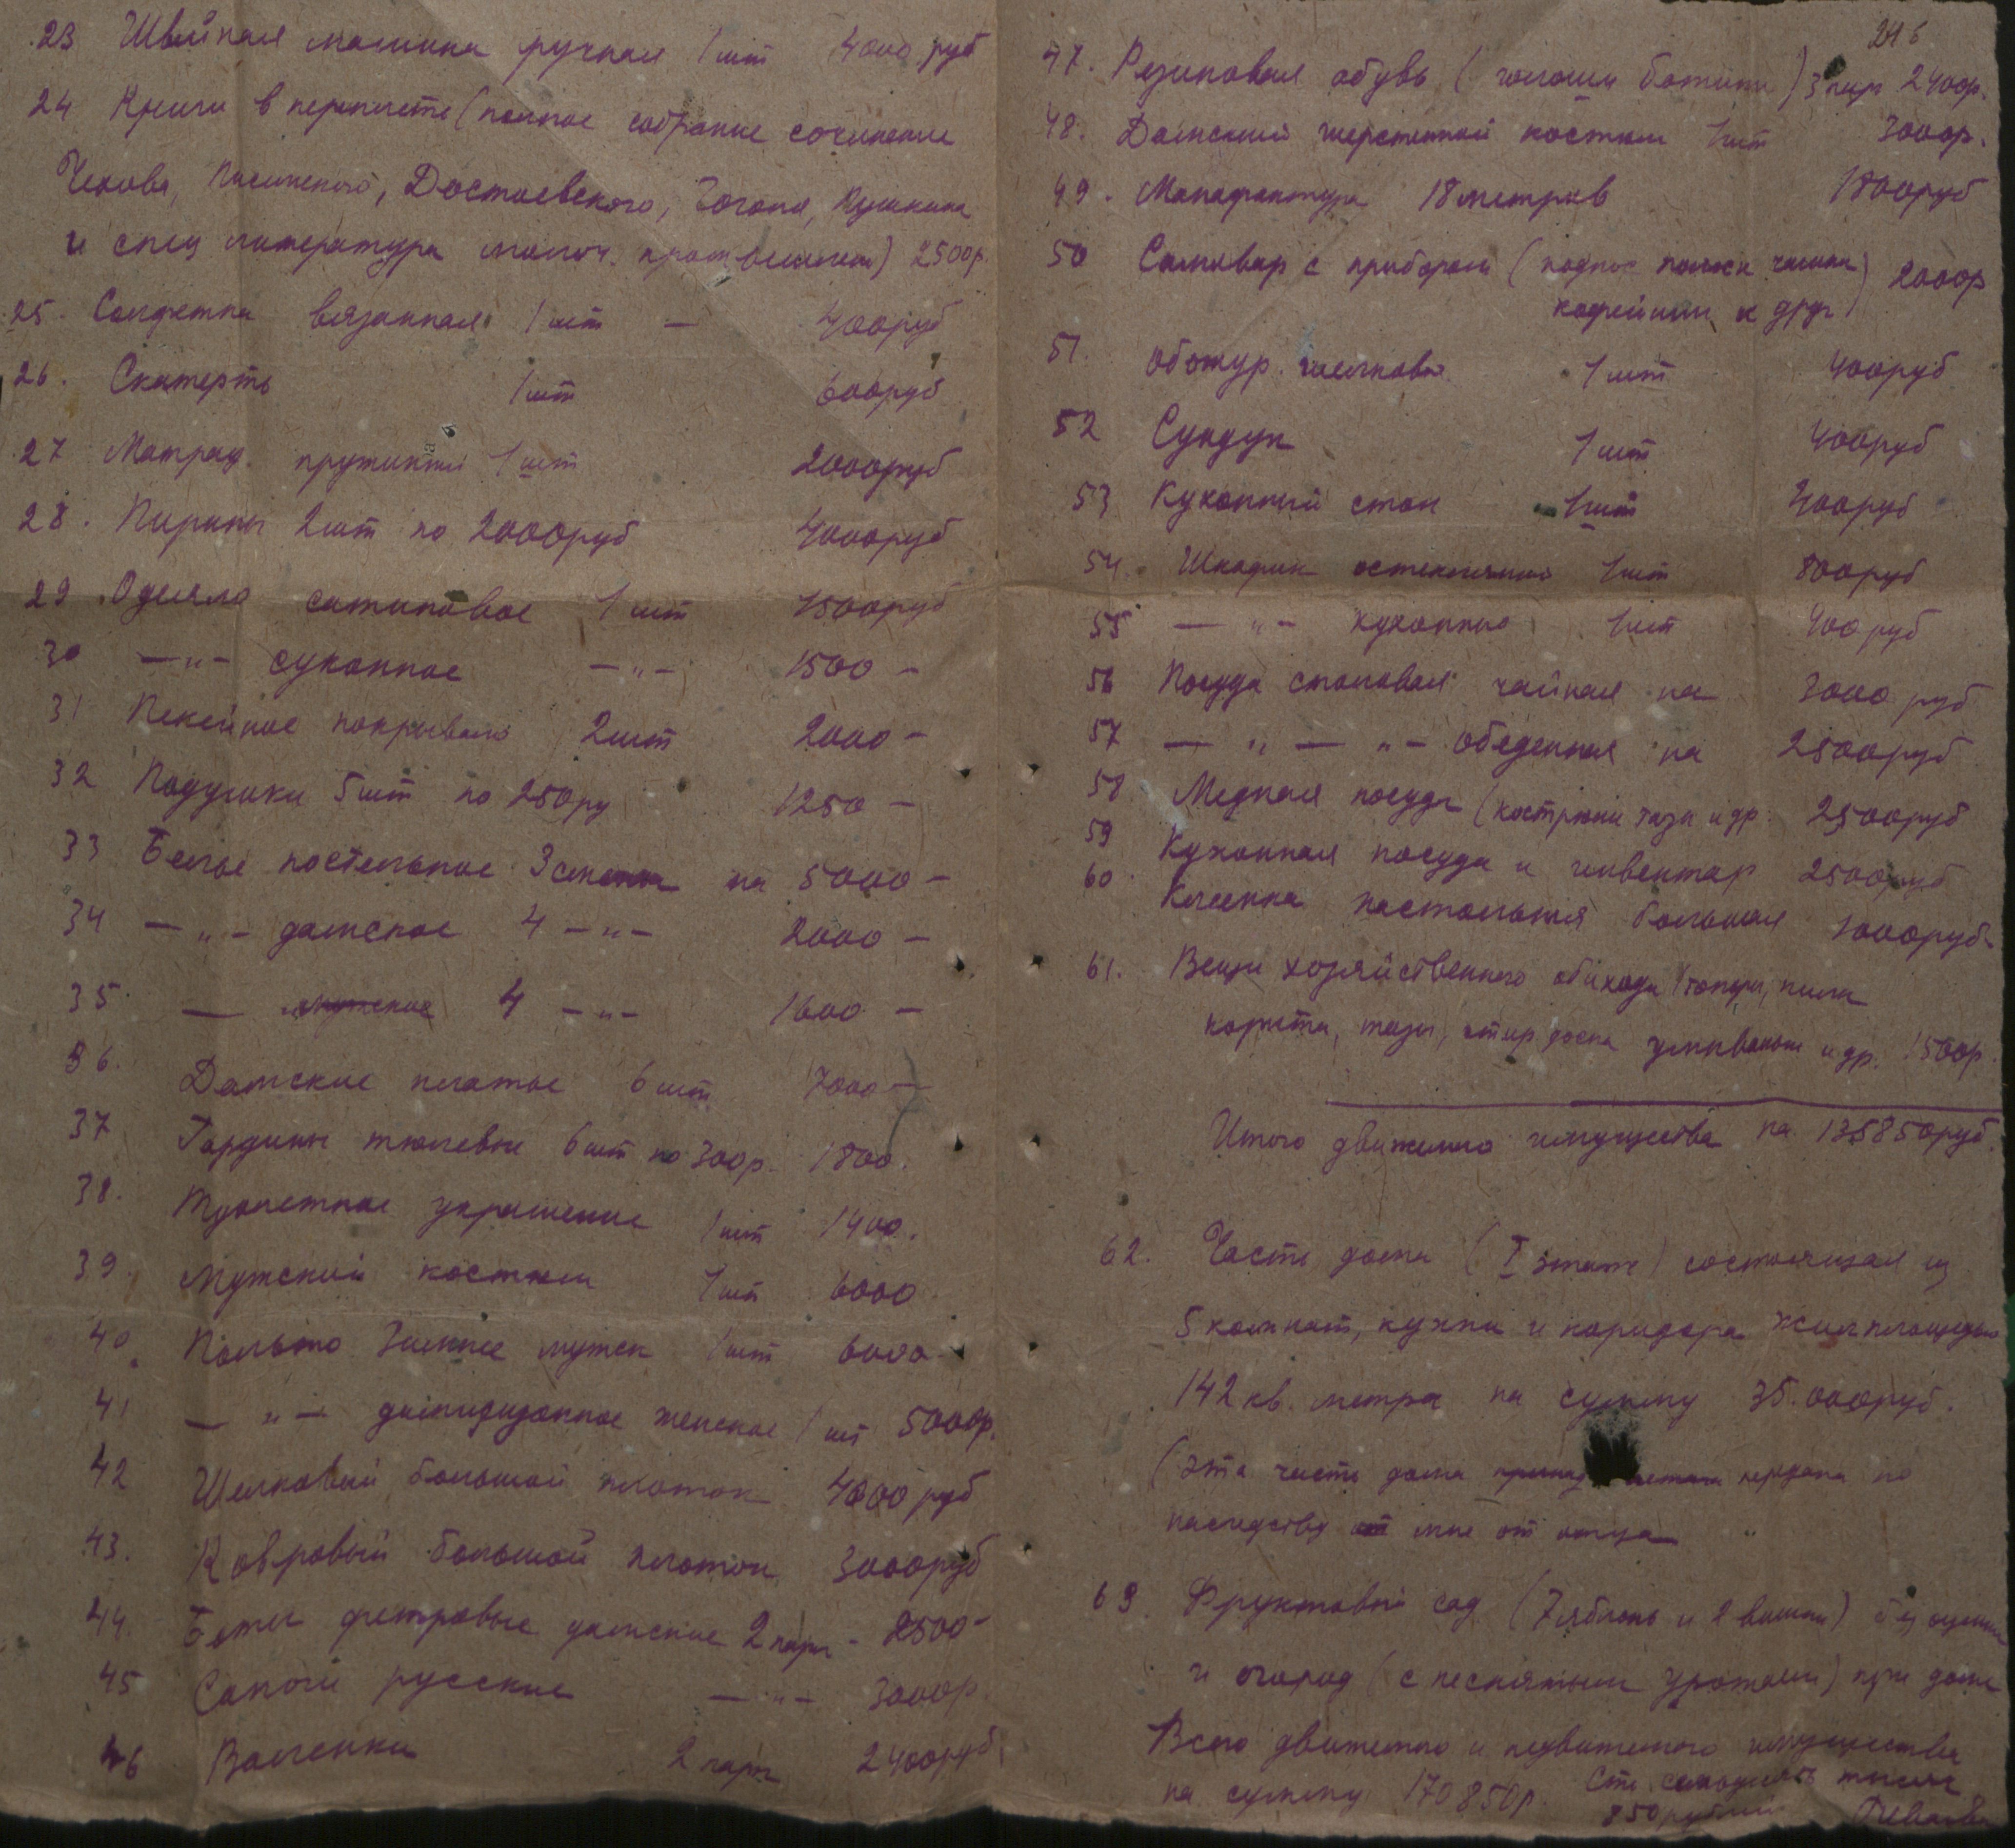 23 Швейная машина ручная 1 шт 4000 руб
24 Книги в переплете (полное собрание сочинение
Чехова, Писемского, Достоевского, Гоголя, Пушкина
и спец литература молоч. промышлен) 2500р.
25. Салфетка вязанная 1 шт — 400руб
26. Скатерть 1шт 600руб
27 Матрац пружинный 1 шт 2000руб
28. Пирины 2шт по 2000руб 4000руб
29 Одеяло сатиновое 1 шт 1500руб
30 —"— суконное —"— 1500 —
31 Пекейное покрывало 2шт 2000 —
32 Подушки 5шт по 250ру 1250 —
33 Белье постельное 3 смены на 5000 —
34 —"— дамское 4 —"— 2000 —
35. — мужское 4 —"— 1600 —
36. Дамские платье 6 шт 7000 —
37 Гардины тюлевые 6 шт по 300р. 1800.
38. Туалетное украшение 1 шт 1400.
39. Мужский костюм 1 шт 6000
40. Польто зимнее мужск 1 шт 6000
41 —"— демисизонное женское 1 шт 5000р.
42 Шелковый большой платок 4000 руб
43. Ковровый большой платок 3000руб
44. Боты фетровые дамские 2 пары - 2500-
45 Сапоги русские —"— 3000р.
46 Валенки 2 пары 2400руб
246
47. Резиновая обувь (галоши ботики) 3 пар 2400р.
48. Дамский шерстяной костюм 1 шт 3000р.
49. Манафактура 18 метров 1800руб
50 Самовар с прибором (поднос чашки) 2000р
кофейник и друг)
51. Обожур шелковы. 1 шт 400руб
52 Сундук 1 шт 400руб
53 Кухонный стол 1шт 200руб
54. Шкафик остекленный 1шт 800руб
55 —"— кухонный 1шт 400 руб
56 Посуда столовая чайная на 3000 руб
57 —"— —"— обеденная на 2500руб
58 Медная посуда (кострюли тазы и др. 2500руб
59 Кухонная посуда и инвентар 2500руб
60. Клеенка настольная большая 1000руб.
61. Вещи хозяйственного обихода (топоры, пилы
корыта, тазы, стир доска умывальн и др. 1500р.
Итого движимого имущества на 135850руб.
62. Часть дома (I этаж) состоящая из
5 комнат, кухни и коридора жилплощадью
142 кв. метра на сумму 35.000руб.
(эта часть дома передана по
наследству мне от отца
63. Фруктовый сад (7 яблонь и 2 вишни) без оценки
и огород (с неснятым урожаем) при доме
Всего движимого и недвижимого имущества
на сумму 170850р. Сто семьдесять тысяч
850 рублей